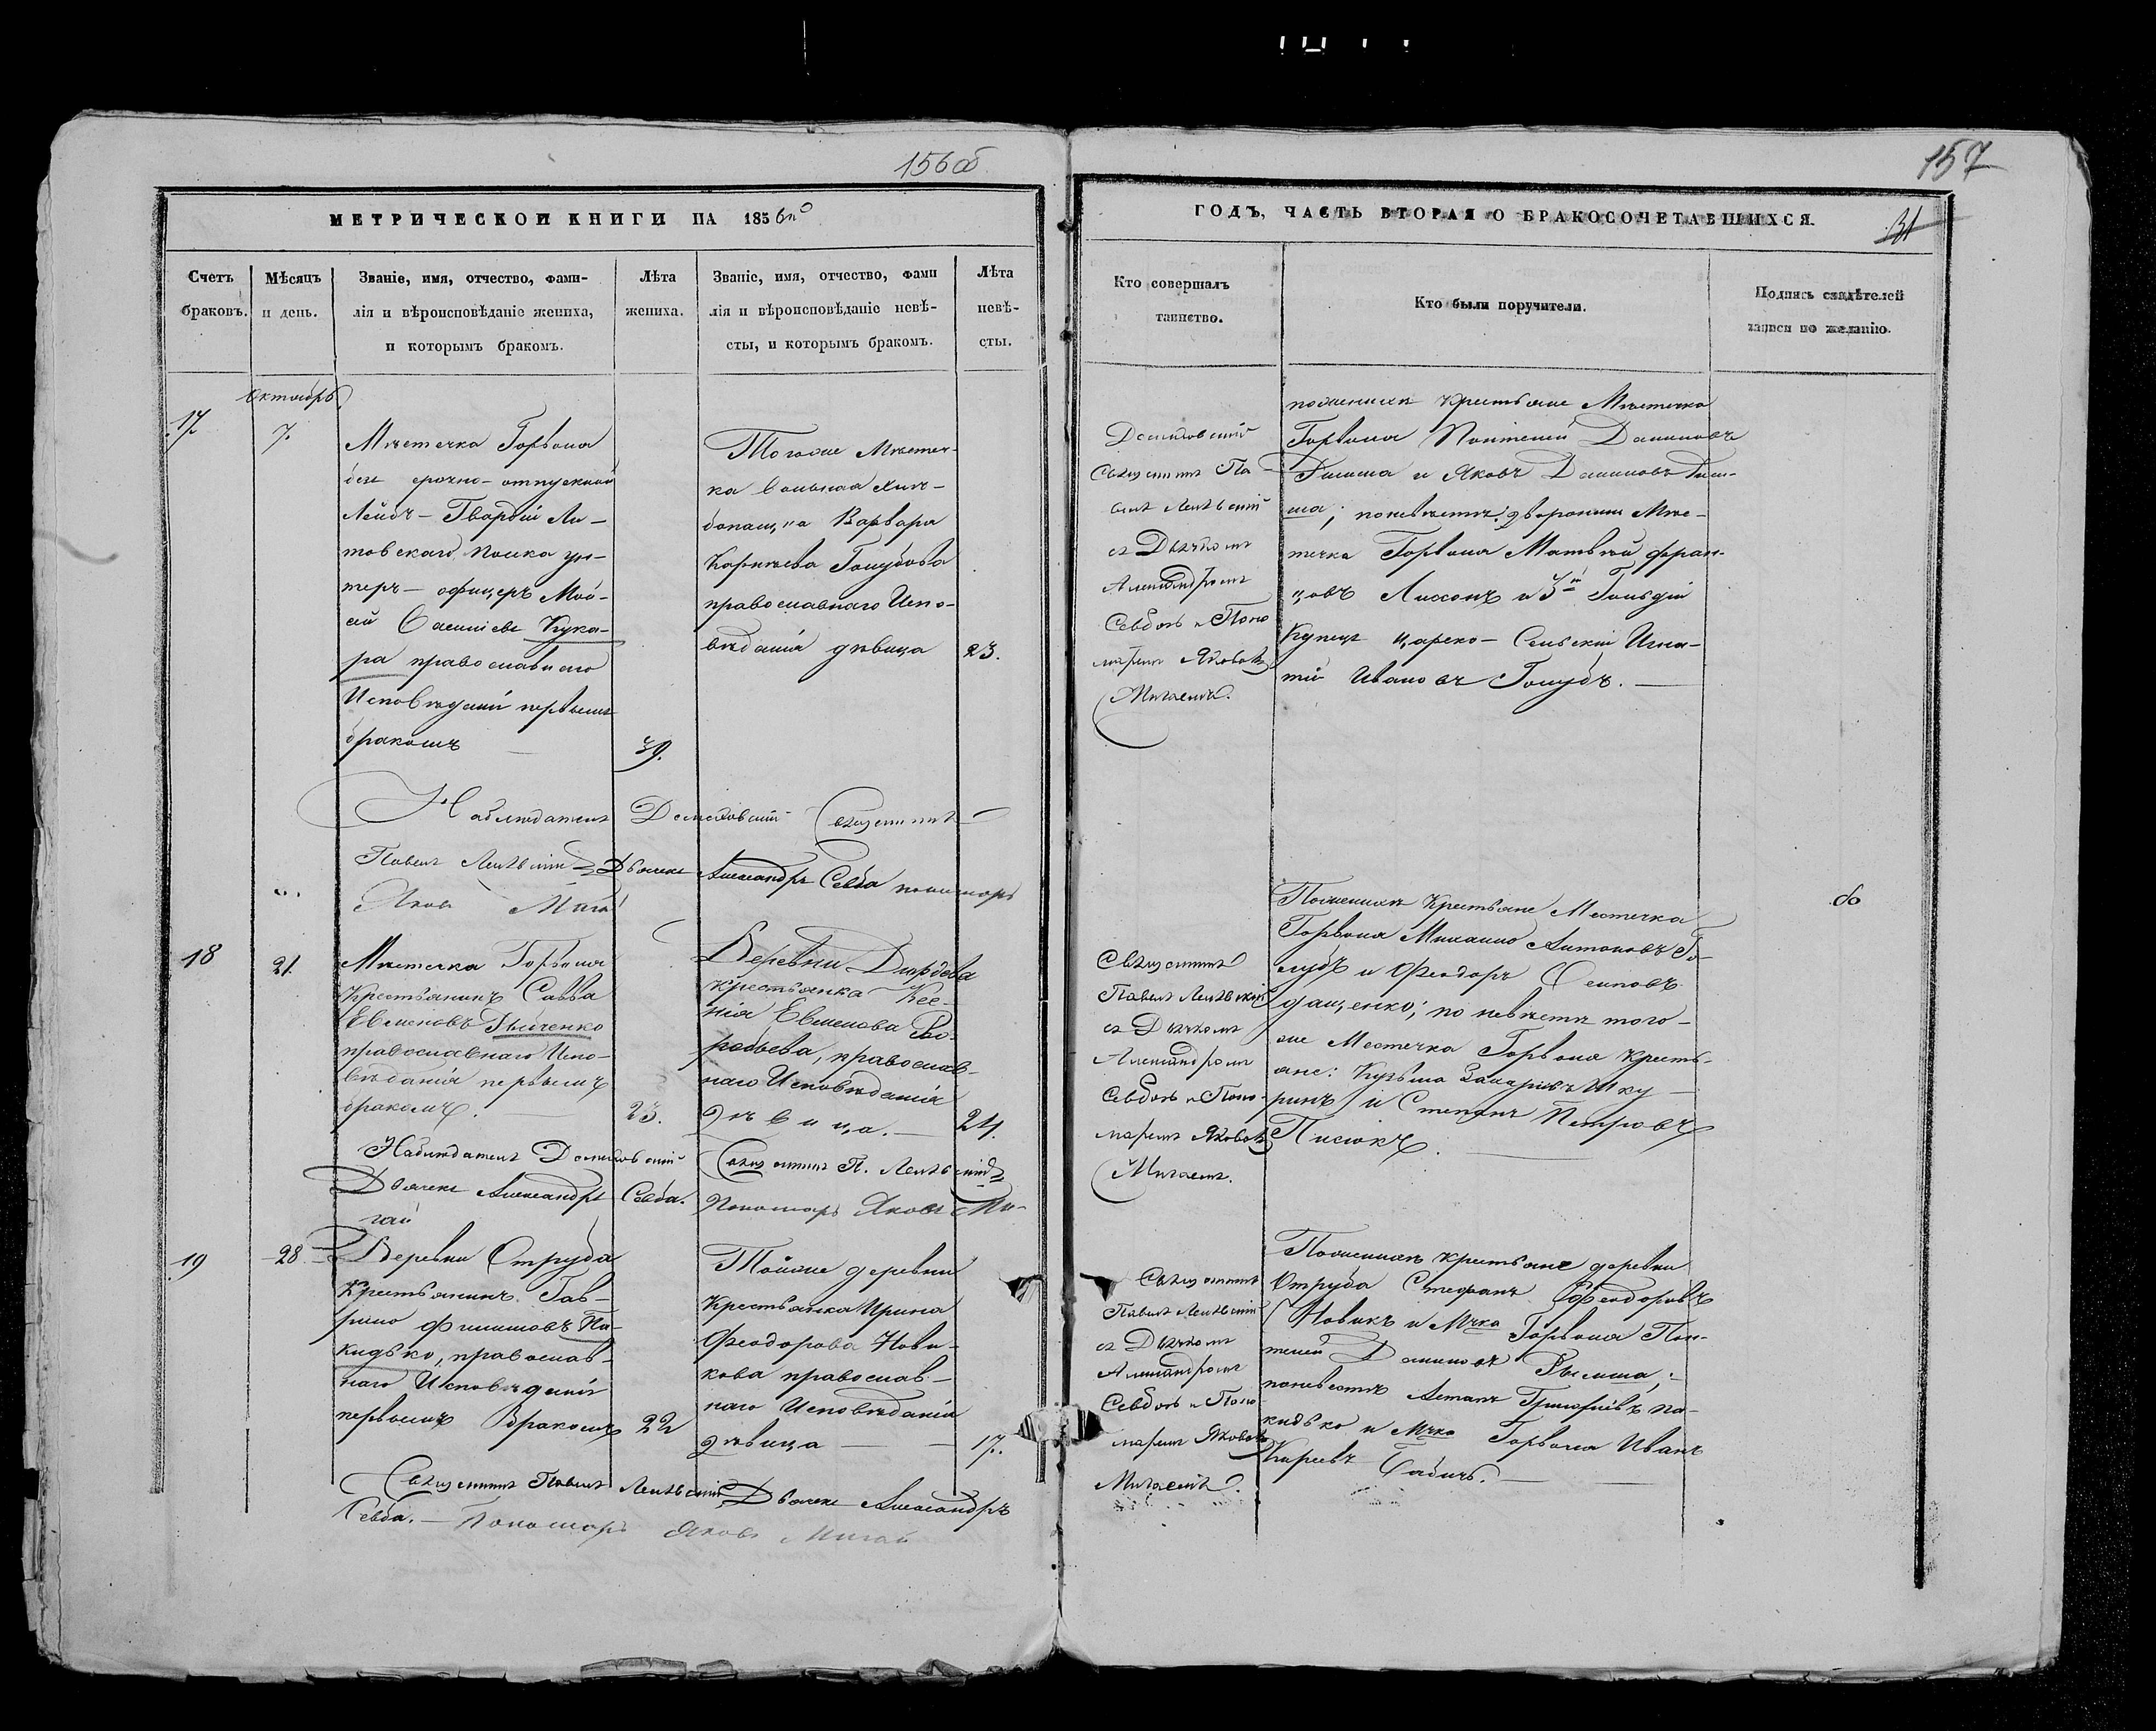 156об
МЕТРИЧЕСКОЙ КНИГИ НА 1856й
Счетъ
браковъ.
Мѣсяцъ
и день.
Званіе, имя, отчество, фами-
лія и вѣроисповѣданіе жениха,
и которымъ бракомъ.
Лѣта
жениха.
Званіе, имя, отчество, фами
лія и вѣроисповѣданіе невѣ-
сты, и которымъ бракомъ.
Лѣта
невѣ-
сты.
Октябрь
17
7.
Мѣстечка Горвола
срочно-отпускной
Лейбъ-Гвардіи Ли-
товскаго полка ун-
теръ-офицеръ Мой-
сей Кука-
ра православнаго
Исповѣданій первымъ
бракомъ
39.
Тогоже Мѣстеч-
ка вольная хлѣ-
бопащца Варвара
Карпѣева Голубова
православнаго Испо-
вѣданія дѣвица
23.
Священникъ
Павелъ Дьячекъ Александръ Севба пономарь
Яковъ Мигай
18
21.
Мѣстечка Горвола
Крестьянинъ Савва
Евменовъ
православнаго Испо-
вѣданія первымъ
бракомъ.
23.
Деревни Дюрдева
крестьянка Ксе-
нія Евменова
православ-
наго Исповѣданія
дѣвица.
24.
Священникъ П.
Дьячекъ Александръ Севба. Пономарь Яковъ Ми-
гай
19
28
Деревни Отруба
Крестьянинъ Гав-
рило Филиповъ Па-
кидько, православ-
наго Исповѣданій
первымъ бракомъ
22
Тойже деревни
Крестьянка Ирина
Феодорова Нови-
кова православ-
наго Исповѣданія
дѣвица
17.
Священникъ Павелъ Дьячекъ Александръ
Севба. Пономарь Яковъ Мигай
157
31
ГОДЪ, ЧАСТЬ ВТОРАЯ О БРАКОСОЧЕТАВШИХСЯ.
Кто совершалъ
таинство.
Кто были поручители.
Подпись свидѣтелей
записи по желанію.
Священникъ Па-
велъ
съ Дьячкомъ
Александромъ
Севбою и Поно
маремъ Яковомъ
Мигаемъ.
пожениxѣ крестьяне Мѣстечка
Горвола Пантелей Даниловъ
и Яковъ Даниловъ
поневѣстѣ: дворянинъ Мѣс-
течка Горвола Матвѣй Фран-
цовъ и 3й Гильдіи
Купецъ Царско-Сельскій Игна-
тій Ивановъ Голубъ.
Священникъ
Павелъ
съ Дьячкомъ
Александромъ
Севбою и Поно-
маремъ Яковомъ
Мигаемъ.
Поженихѣ Крестьяне Местечка
Горвола Михаило Антоновъ Го-
лубъ и Феодоръ Осиповъ
по невѣстѣ того-
же Местечка Горвола Кресть-
яне: Кузьма Захаріевъ Шку-
ринъ и Степанъ Петровъ
Писюкъ.
Священникъ
Павелъ
съ Дьячкомъ
Александромъ
Севбою и Поно
маремъ Яковомъ
Мигаемъ.
Поженихѣ крестьяне деревни
Отруба Стефанъ Феодоровъ
Новикъ и Мчка Горвола Пан-
телей Даниловъ
поневестѣ Астапъ Григоріевъ Па-
кидько и Мчка Горвола Иванъ
Карпѣевъ